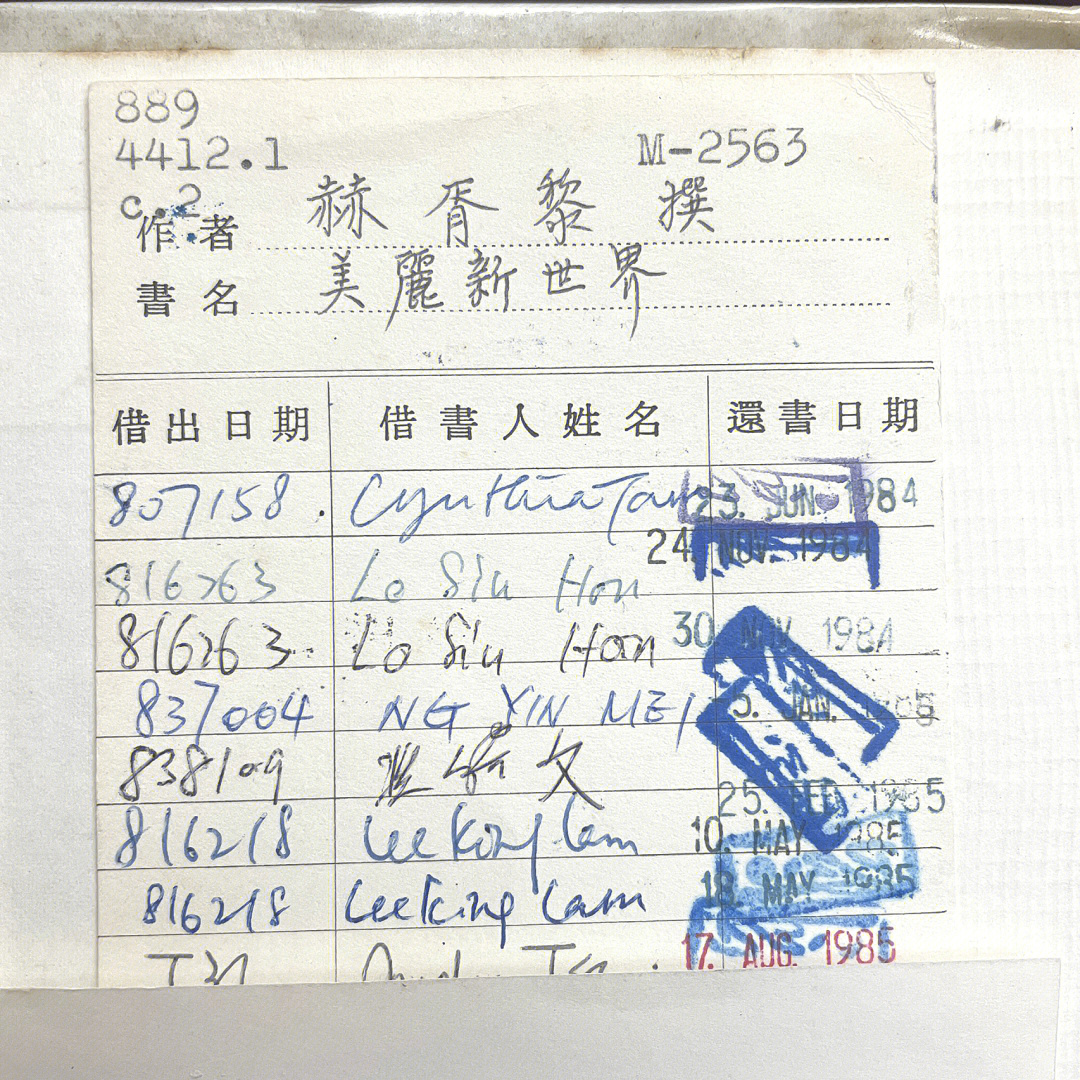 889
4412.1 M-2563
c.2
作者 赫胥黎撰
書名 美麗新世界
借出日期 借書人姓名 還書日期
807158. Cynthia 23. JUN. 1984
24. NOV. 1984
816263 Lo Siu Hon
816263 Lo Siu Hon 30. NOV. 1984
837004 NG YIN MEI 5. JAN. 1985
838109 文
25. FEB. 1985
816218 Lee King Lam 10. MAY 1985
816218 Lee King Lam 18. MAY 1985
17. AUG. 1985